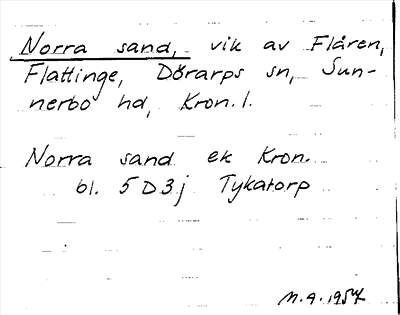 Norra sand, vik av Flåren,
Flattinge, Dörarps sn, Sun-
nerbo hd, Kron. l.
Norra sand ek Kron.
bl. 5D3j Tykatorp
M.A. 1954